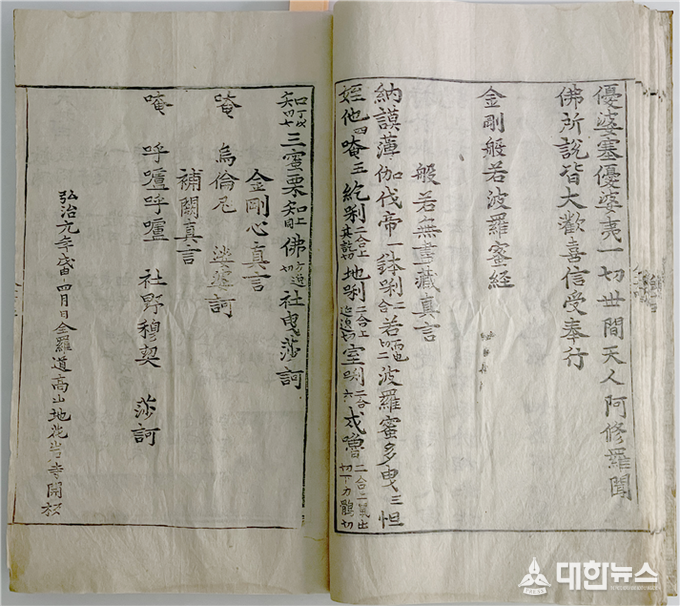 優婆塞優婆夷一切世間天人阿修羅聞
佛所說皆大歡喜信受奉行
金剛般若波羅蜜經
般若無盡藏真言
納謨薄伽伐帝一鉢唎二合若二波羅蜜多曳三怛
姪他四唵五紇唎二合上地唎二合上室唎二合六戍嚕二合
知三蜜栗知佛社曳莎訶
金剛心真言
唵 烏倫尼 娑婆訶
補闕真言
唵 呼嚧呼嚧 社野穆契 莎訶
弘治元年戊申四月日全羅道高山地花岩寺開板
대한뉴스